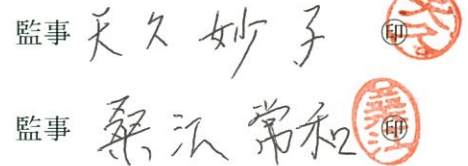 監事 天久 妙子 ㊞
監事 桑江 常和 ㊞